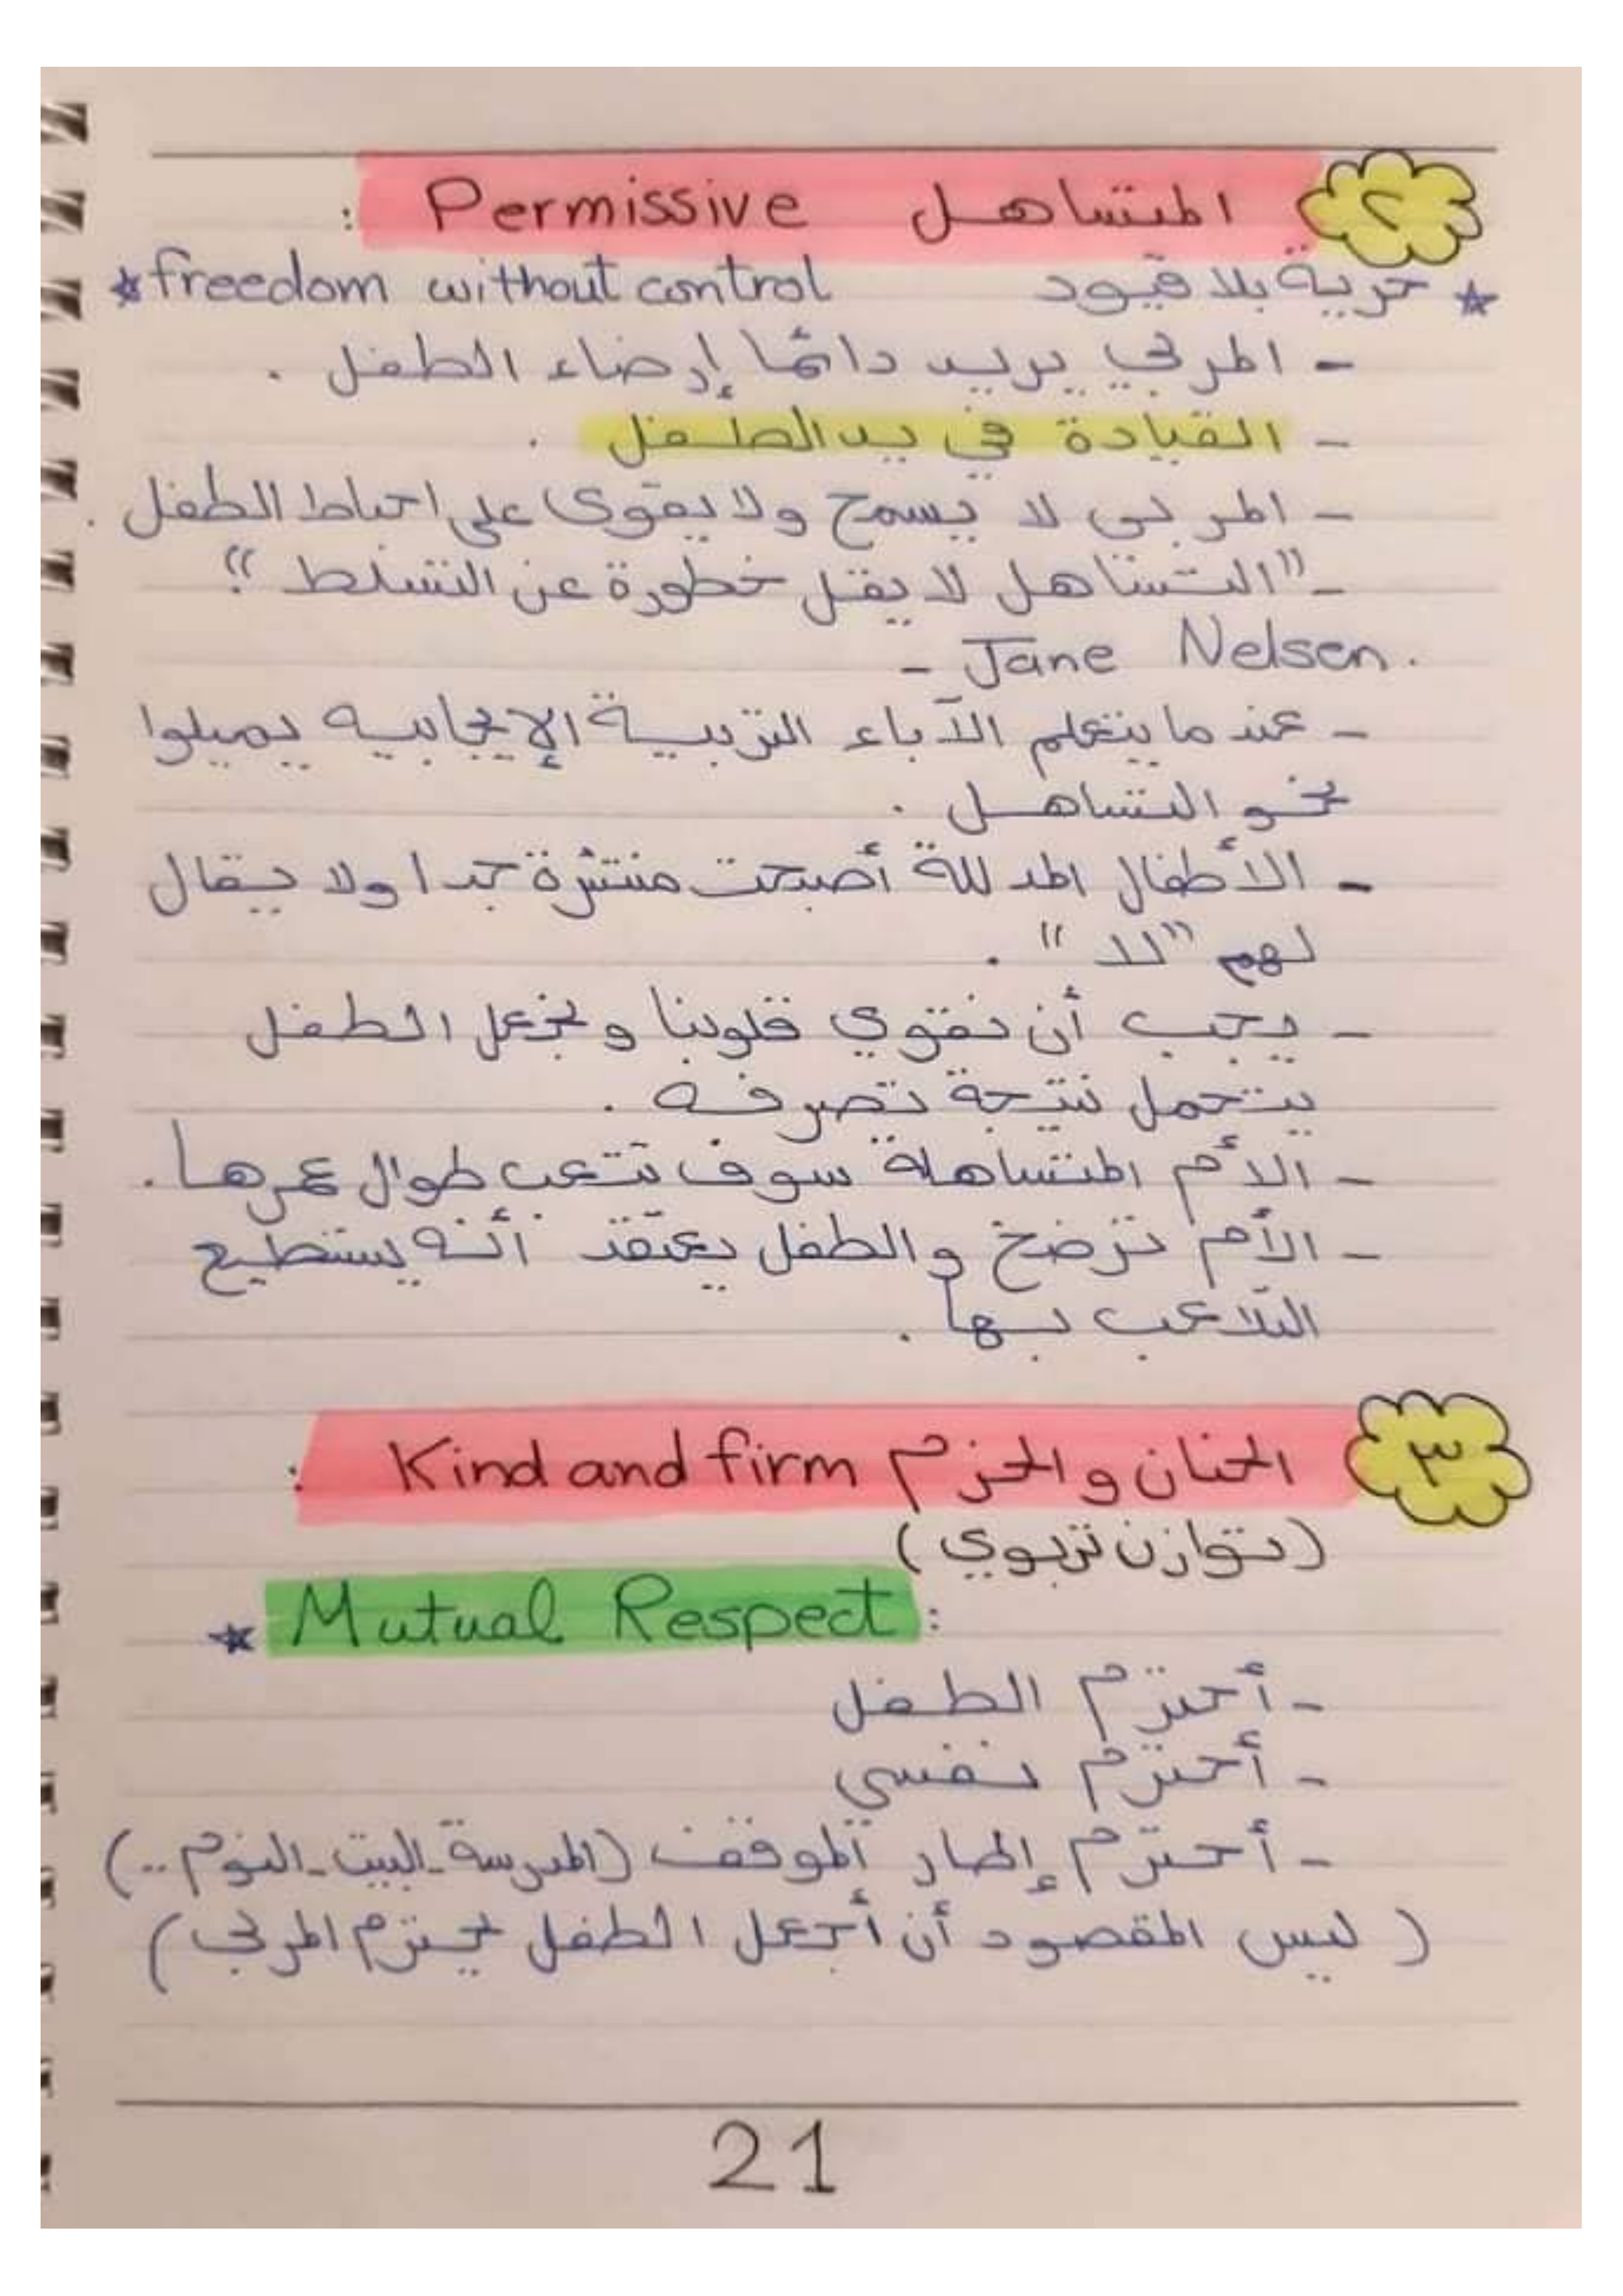 ٢ المتساهل Permissive :
* حرية بلا قيود freedom without control *
- المربي يريد دائمًا إرضاء الطفل .
- القيادة في يد الطفل .
- المربي لا يسمح ولا يقوى على احباط الطفل .
- "التساهل لا يقل خطورة عن التسلط"
- Jane Nelsen .
- عندما يتعلم الآباء التربية الإيجابيه يميلوا
نحو التساهل .
- الأطفال المدللة أصبحت منتشرة جدا ولا يقال
لهم "لا" .
- يجب أن نقوي قلوبنا ونجعل الطفل
يتحمل نتيجة تصرفه .
- الأم المتساهلة سوف تتعب طوال عمرها .
- الأم ترضخ والطفل يعتقد أنه يستطيع
التلاعب بها .
٣ الحنان والحزم Kind and firm :
(توازن تربوي)
* Mutual Respect :
- أحترم الطفل
- أحترم نفسي
- أحترم إطار الموقف (المدرسة - البيت - النوم ..)
( ليس المقصود أن أجعل الطفل يحترم المربي )
21